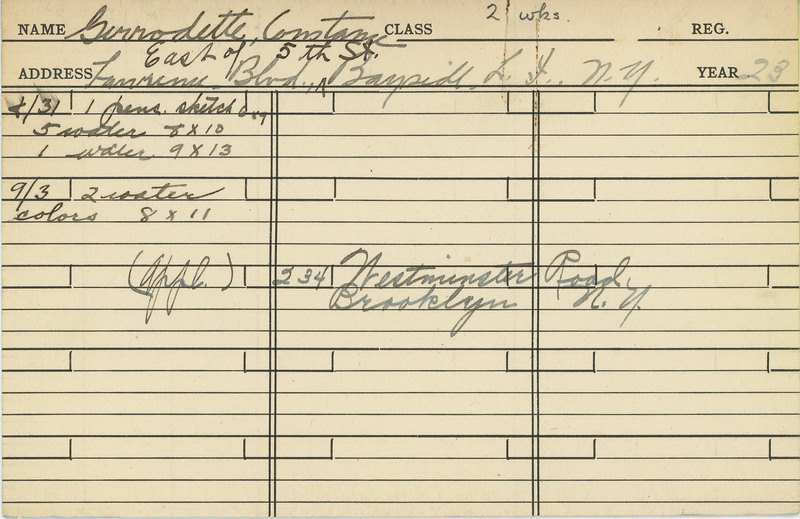 NAME Gerrodette, Constance CLASS 2 wks. REG.
East of 5th St.
ADDRESS Lawrence Blvd., Bayside L. I., N.Y. YEAR 23
8/31 1 pens. sketch 8x9
5 water 8 x 10
1 water 9 x 13
9/3 2 water
colors 8 x 11
(Appl.) 234 Westminster Road
Brooklyn N.Y.